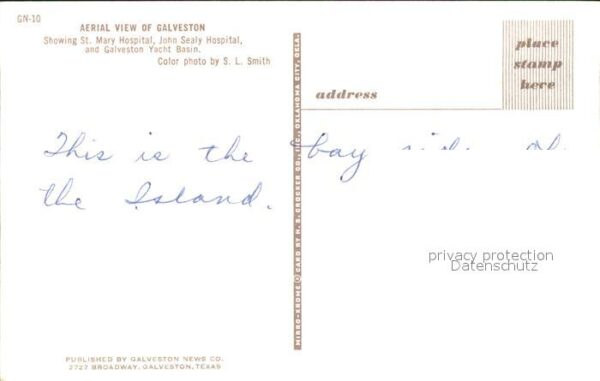 GN-10
AERIAL VIEW OF GALVESTON
Showing St. Mary Hospital, John Sealy Hospital,
and Galveston Yacht Basin.
Color photo by S. L. Smith
place
stamp
here
address
This is the bay
the Island.
MIRRO-KROME ® CARD BY H. S. CROCKER CO., INC., OKLAHOMA CITY, OKLA.
privacy protection
Datenschutz
PUBLISHED BY GALVESTON NEWS CO.
2727 BROADWAY, GALVESTON, TEXAS